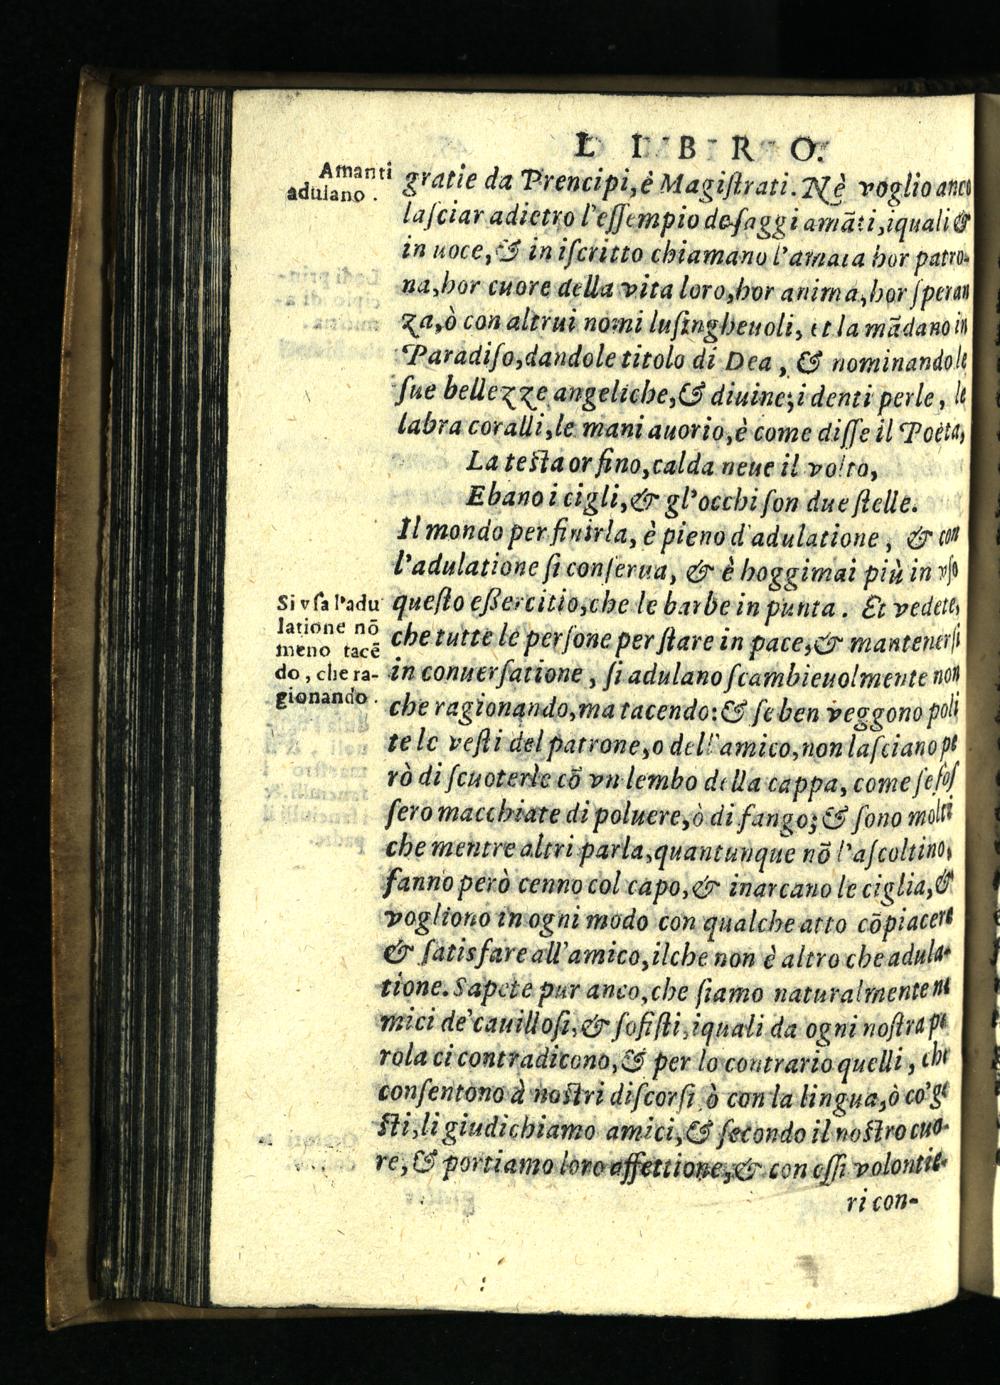 LIBRO.
Amanti
adulano.
gratie da Prencipi, è Magiſtrati. Nè voglio anco
laſciar adietro l'eſſempio de ſaggi amāti, iquali &
in uoce, & in iſcritto chiamano l'amata hor patro-
na, hor cuore della vita loro, hor anima, hor ſperan
za, ò con altrui nomi luſingheuoli, et la mādano in
Paradiſo, dandole titolo di Dea, & nominando le
ſue bellezze angeliche, & diuine; i denti perle, le
labra coralli, le mani auorio, è come diſſe il Poeta,
La teſta or fino, calda neue il volto,
Ebano i cigli, & gl'occhi ſon due ſtelle.
Il mondo per finirla, è pieno d'adulatione, & con
l'adulatione ſi conſerua, & è hoggimai più in vſo
queſto eſſercitio, che le barbe in punta. Et vedete,
che tutte le perſone per ſtare in pace, & mantenerſi
in conuerſatione, ſi adulano ſcambieuolmente non
che ragionando, ma tacendo: & ſe ben veggono poli
te le veſti del patrone, o dell'amico, non laſciano pe
rò di ſcuoterle cō vn lembo della cappa, come ſe foſ
ſero macchiate di poluere, ò di fango; & ſono molti
che mentre altri parla, quantunque nō l'aſcoltino,
fanno però cenno col capo, & inarcano le ciglia, &
vogliono in ogni modo con qualche atto cōpiacere
& ſatisfare all'amico, ilche non è altro che adula-
tione. Sapete pur anco, che ſiamo naturalmente ne
mici de' cauilloſi, & ſofiſti, iquali da ogni noſtra pa
rola ci contradicono, & per lo contrario quelli, che
conſentono à noſtri diſcorſi ò con la lingua, ò co' ge
ſti, li giudichiamo amici, & ſecondo il noſtro cuo-
re, & portiamo loro affettione, & con eſſi volontie-
ri con-
Si vſa l'adu
latione nō
meno tacē
do, che ra-
gionando.